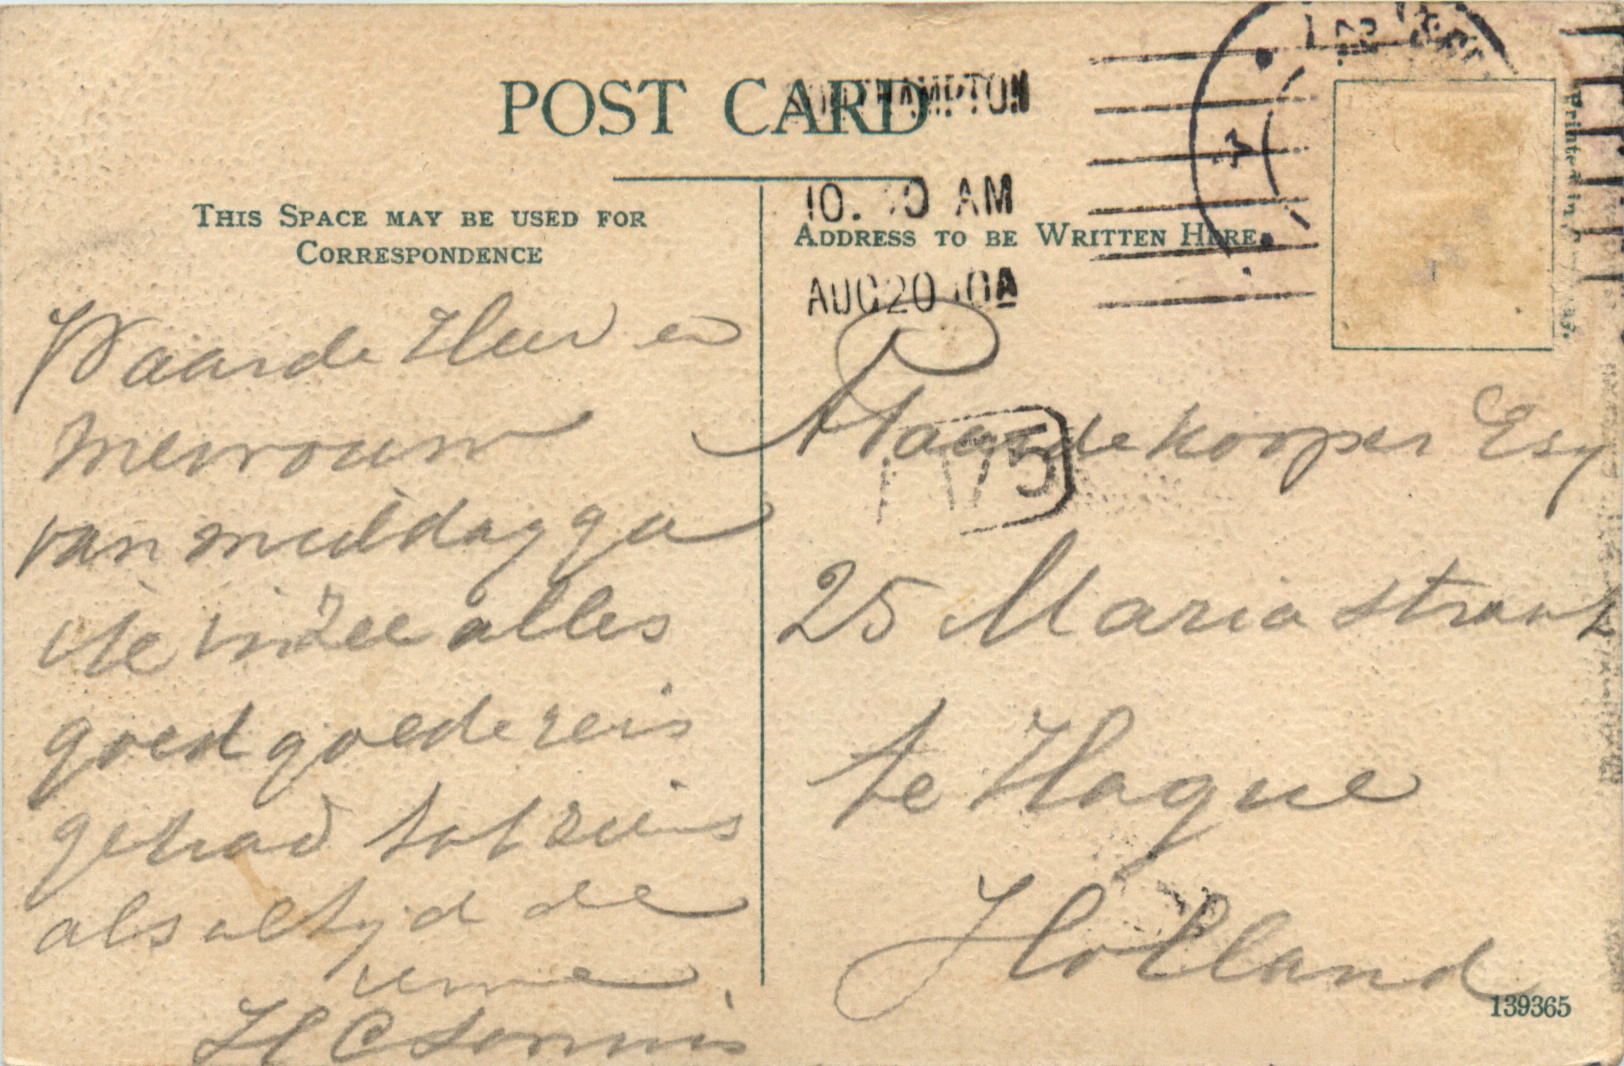 POST CARD
SOUTHAMPTON
10. 0 AM
AUG 20 10A
THIS SPACE MAY BE USED FOR
CORRESPONDENCE
ADDRESS TO BE WRITTEN HERE.
Printed in
Waarde Heer en
Mevrouw
van middag ga
ik in zee alles
goed goede reis
gehad tot ziens
als altijd de
uwe
H C
Paardekooper Esq
25 Maria straat
te Hague
Holland
175
139365